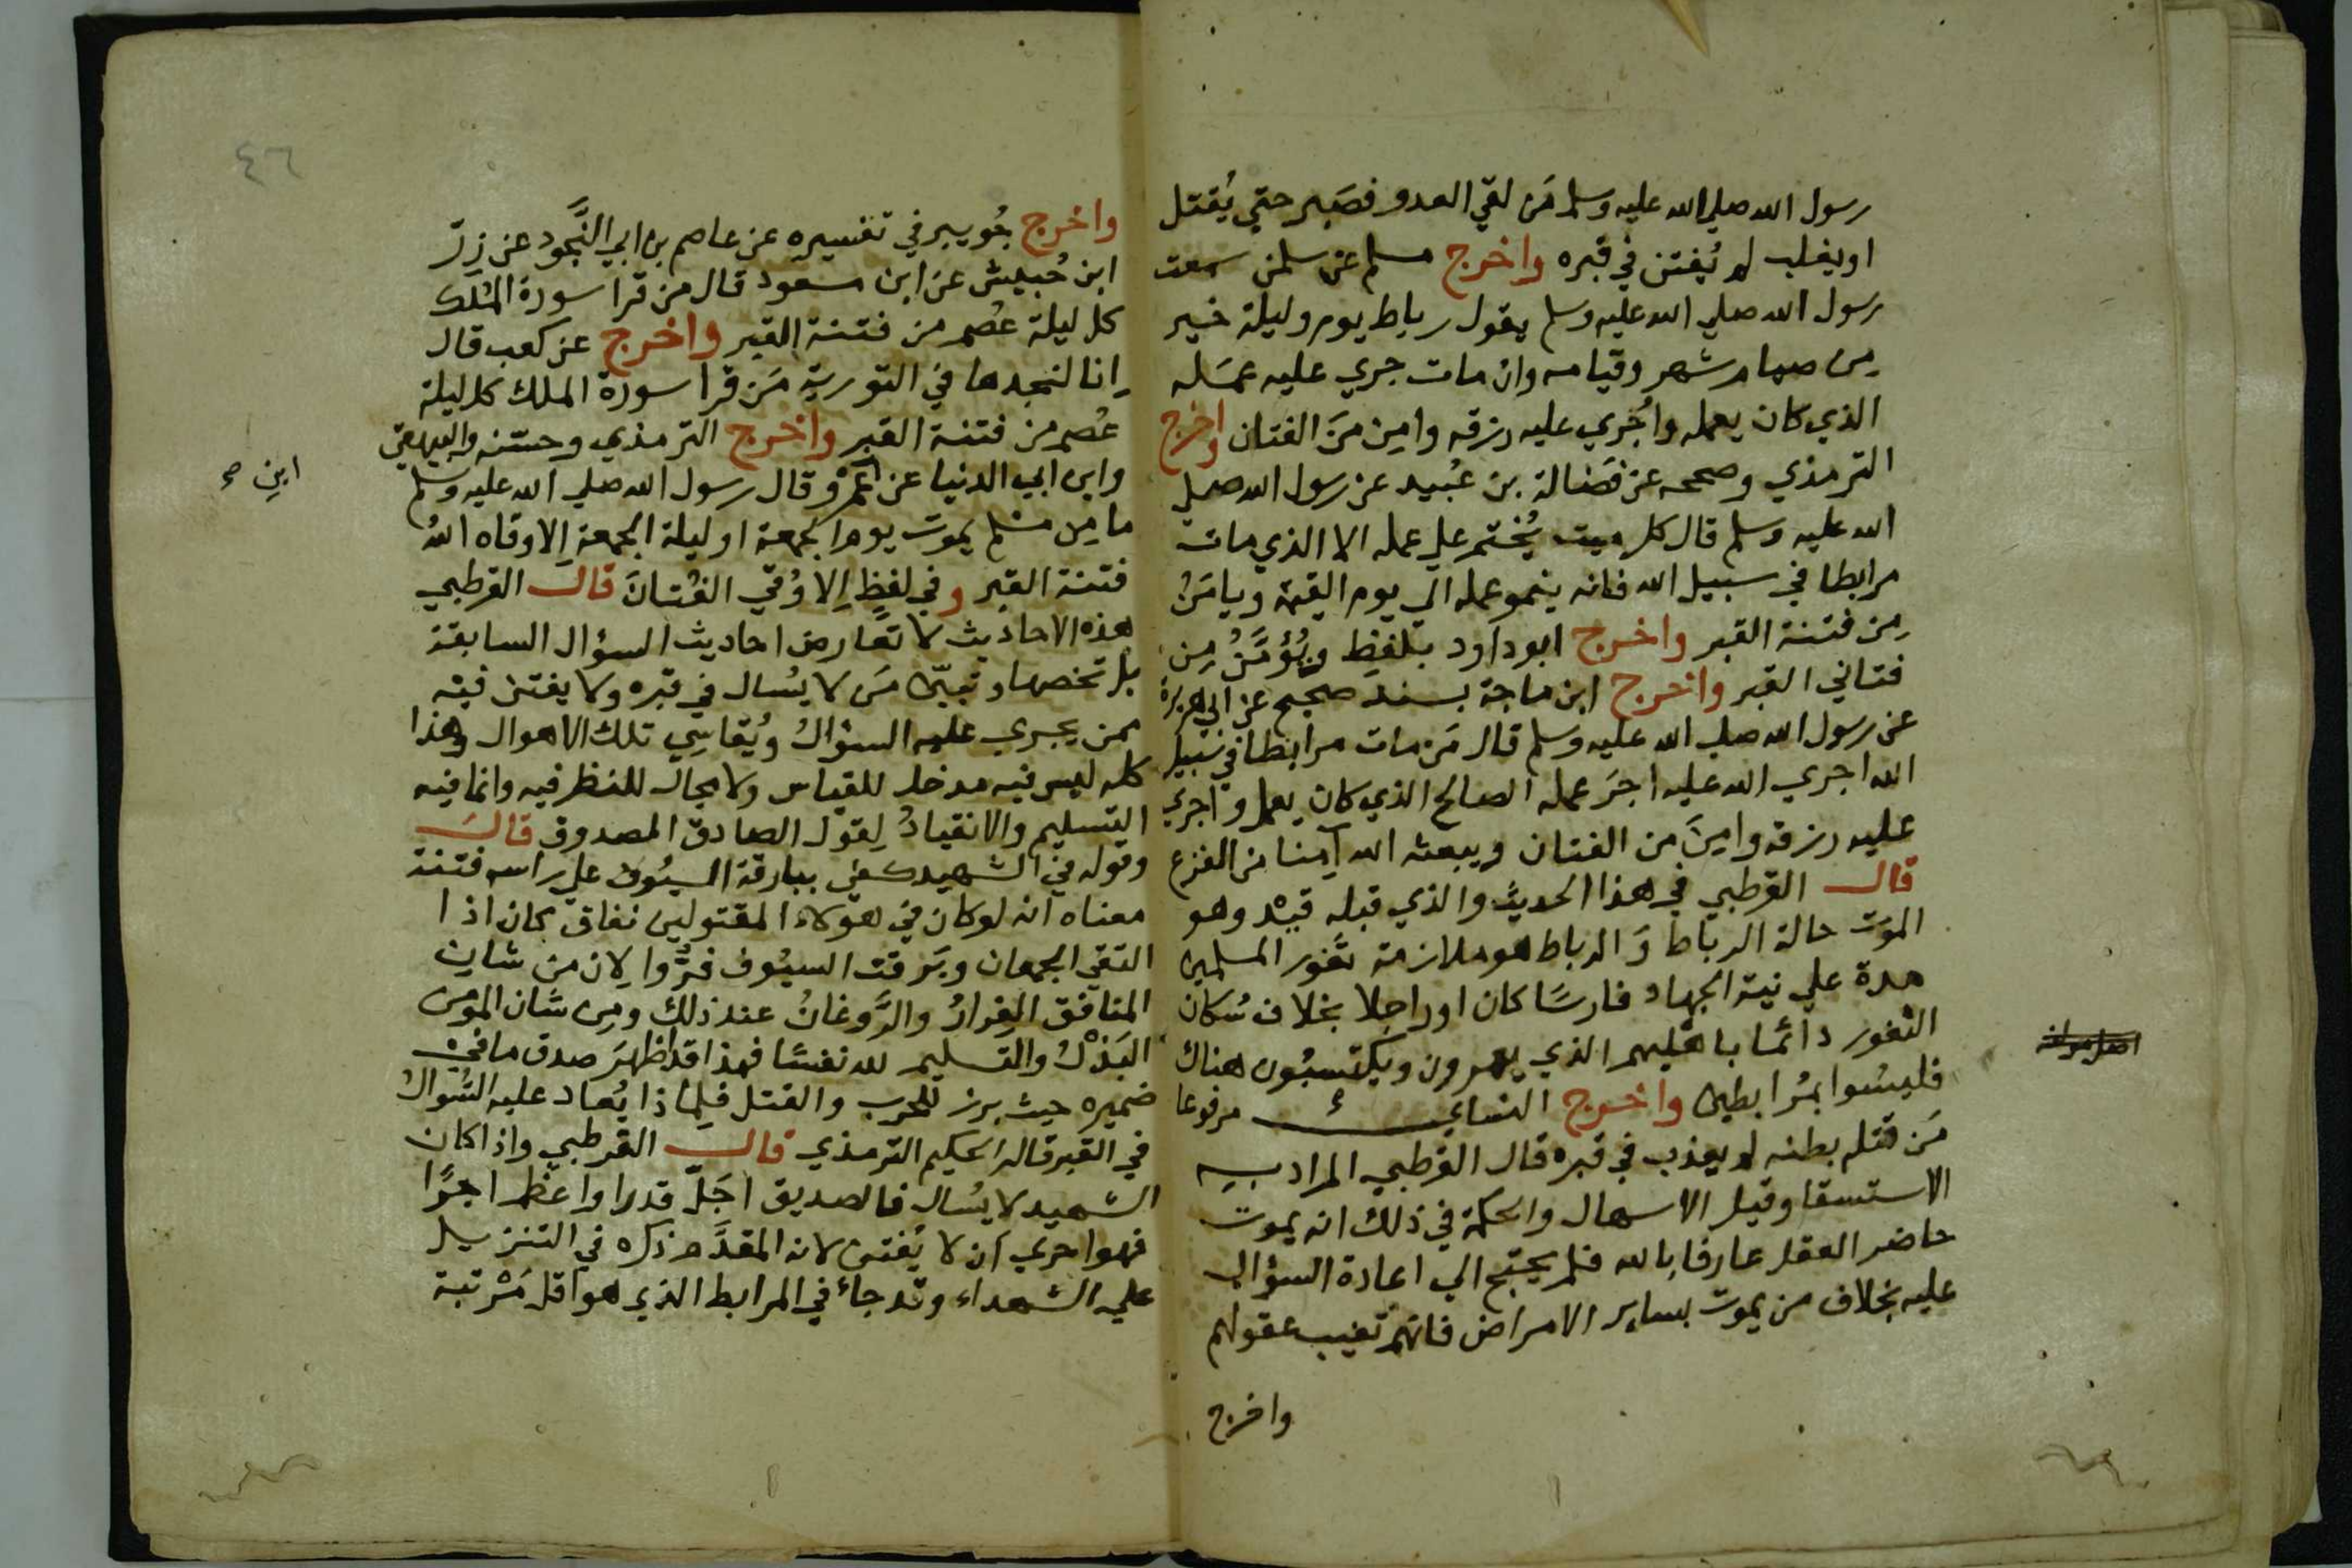 رسول الله صلي الله عليه وسلم مَن لقي العدو فصَبر حتي يُقتل
او يغلب لم يُفتن في قبره واخرج مسلم عن سلمن سمعت
رسول الله صلي الله عليه وسلم يقول رباط يوم وليلة خير
مِن صيام شهر وقيامه وان مات جري عليه عمَله
الذي كان يعمله واُجْري عليه رزقه وامِن مِنَ الفتان واخرج
الترمذي وصححه عن فَضالة بن عُبيد عن رسول الله صلي
الله عليه وسلم قال كل ميت يُختم علي عمله الا الذي مات
مرابطا في سبيل الله فانه ينمو عمله الي يوم القيمة ويامَنُ
مِن فتنة القبر واخرج ابو داود بلفظِ ويُؤمَّنُ مِن
فتاني القبر واخرج ابن ماجة بسند صحيح عن ابي هريرة
عن رسول الله صلي الله عليه وسلم قال مَن مات مرابطا في سبيل
الله اجري الله عليه اجرَ عمله الصالح الذي كان يعمل واجري
عليه رزقه وامِنَ مِن الفتان ويبعثه الله آمِنا من الفزع
قال القرطبي في هذا الحديث والذي قبله قيْد وهو
الموت حالة الرباط وَالرباط هو ملازمة ثغور المسلمين
مدة علي نية الجهاد فارسًا كان او راجلا بخلاف سُكان
الثغور دائما باهليهم الذي يعمرون ويكتسبُون هناك
فليسُوا بمُرابطين واخرج النساي مرفوعا
مَن قتله بطنه لم يعذب في قبره قال القرطبي المراد به
الاستسقا وقيل الاسهال والحكمة في ذلك انه يموت
حاضر العقل عارفا بالله فلم يحتج الي اعادة السؤال
عليه بخلاف من يموت بساير الامراض فانهم تغيب عقولهم
واخرج
٤٦
واخرج جُويبر في تفسيره عن عاصم بن ابي النَّجود عن زرّ
ابن حُبيش عن ابن مسعود قال من قرا سورة المُلك
كل ليلة عُصم من فتنة القبر واخرج عن كعب قال
اِنا لنجدها في التورية مَن قرا سورة الملك كل ليلة
عُصم من فتنة القبر واخرج الترمذي وحسّنه والبيهقي
وابن ابي الدنيا عن عَمْرو قال رسول الله صلي الله عليه وسلم
ابن
ما مِن مسْلم يموت يوم الجمعة او ليلة الجمعة اِلا وقاه اللهُ
فتنة القبر وفي لفظٍ اِلا وُقي الفُتانَ قال القرطبي
هذه الاحاديث لا تعارض احاديث السؤال السابقة
بل تخصها وتبيّن مَن لا يُسال في قبره ولا يفتن فيه
ممن يجري عليه السؤالُ ويُقاسِي تلك الاهوال وهذا
كله ليس فيه مدخل للقياس ولا مجال للنظر فيه وانما فيه
التسليم والانقيادُ لِقول الصادق المصدوق قالَ
وقوله في الشهيد كفي ببارقة السيُوف علي راسه فتنة
معناه انه لو كان في هؤلاء المقتولين نفاق كان اذا
التقي الجمعان وبَرقت السيُوف فرُّوا لِان من شان
المنافق الفِرارُ والرَّوغانُ عند ذلك ومِن شان المومن
البَذْلُ والتسليم لله نفسًا فهذا قد اظهرَ صدق ما في
ضميره حيث برز للحرب والقتل فلِماذا يُعاد عليه السُوالُ
في القبر قاله الحكيم الترمذي قال القرطبي واذا كان
الشهيد لا يُسال فالصديق اجَلّ قدرا واعظم اجرًا
فهو احري اَن لا يُفتن لانه المقدَّم ذكره في التنزيل
علي الشهداء وقد جاءَ في المرابط الذي هو اقل مَرْتبة